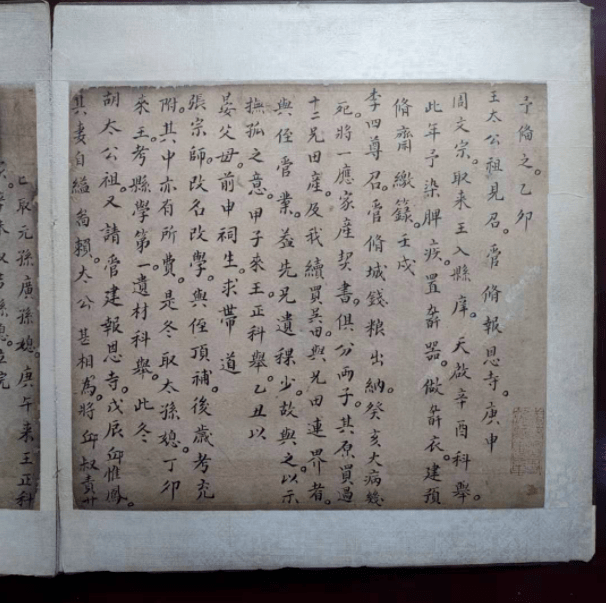 予偹之。乙卯
王太公祖見召。管脩報恩寺。庚申
周文宗。取來王入縣庠。天啟辛酉。科舉。
此年予染脾疾。置壽器。做壽衣。建預
脩齋繳籙。壬戌
李四尊召。管脩城錢粮出納。癸亥大病幾
死。將一應家產契書。俱分兩子。其原買過
十二兄田產。及我續買吳田。與兄田連界者。
與侄管業。葢先兄遺稞少。故與之。以示
撫孤之意。甲子來王。正科舉。乙丑以
晏父毋。前申祠生。求帶道
張宗師。改名改學。與侄頂補。後歲考充
附。其中亦有所費。是冬取太孫媳。丁卯
來王。考縣學第一遺材科舉。此冬
胡太公祖。又請管建報恩寺。戊辰邱惟鳳。
其妻自縊啚賴。太公甚相為。將邱叔責廿
已取元孫廣孫媳。庚午來王正科